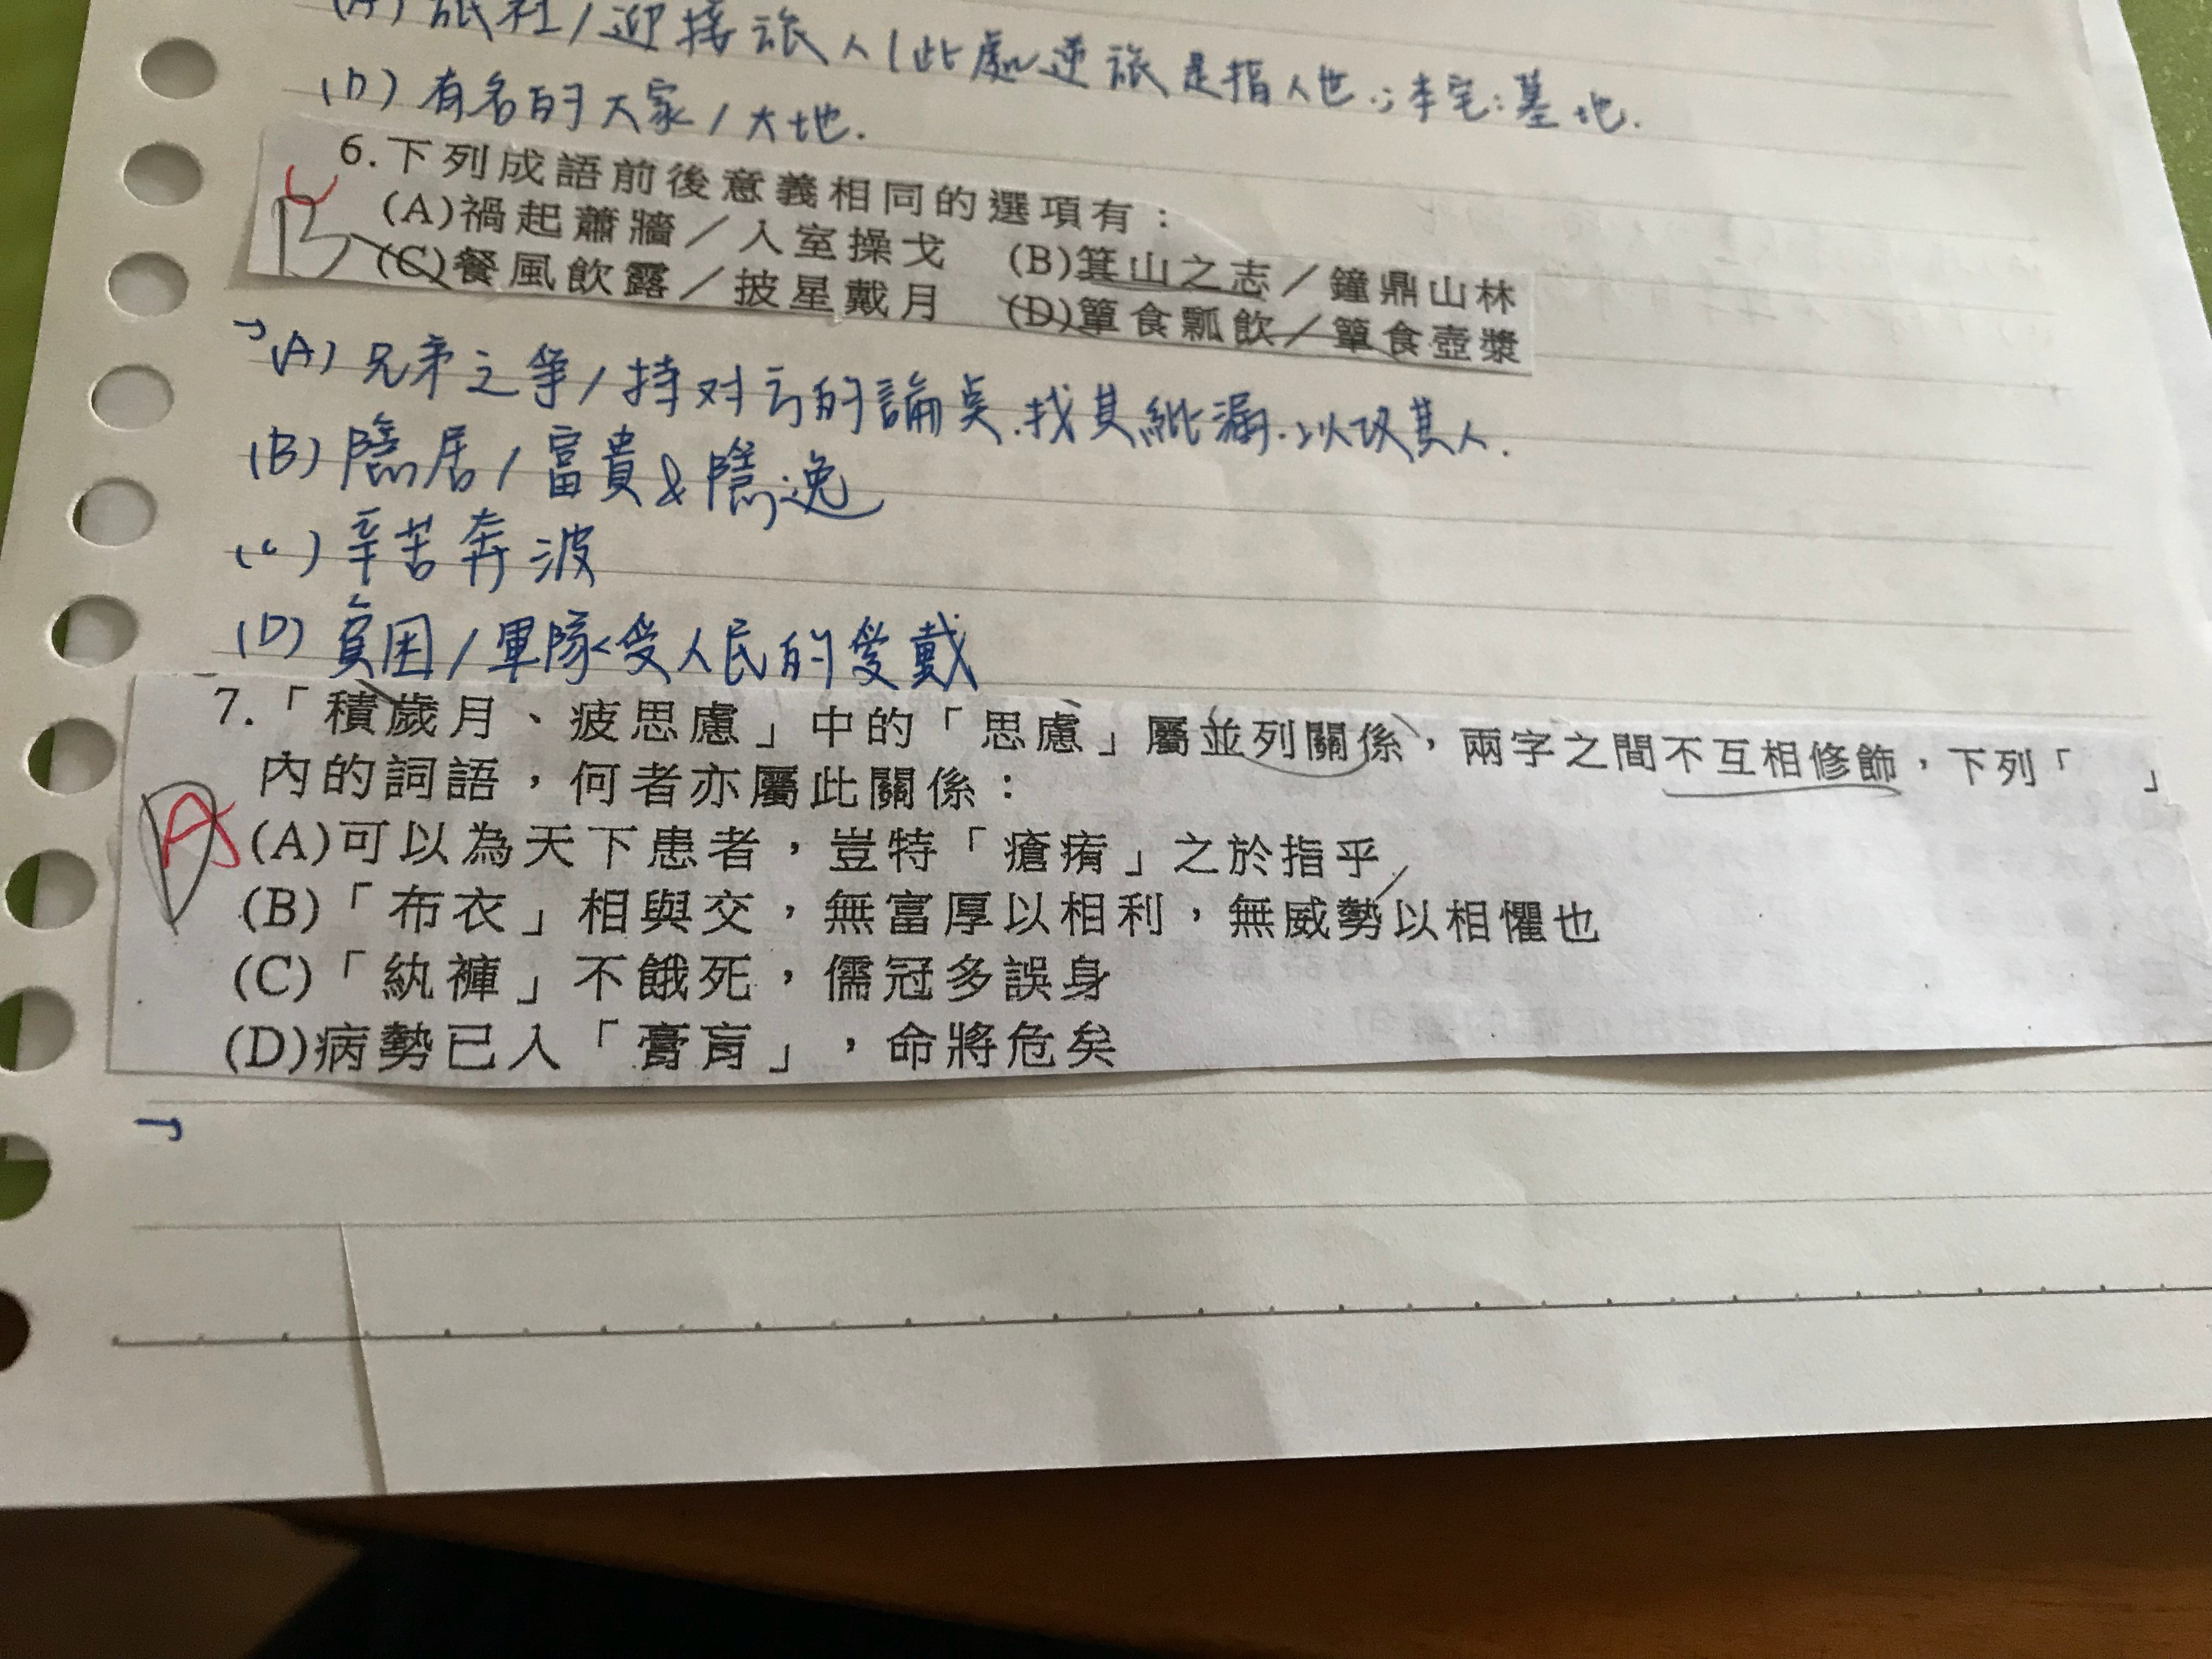 (A) 旅社/迎接旅人(此處逆旅是指人世.;本宅:墓地.
(D) 有名的大家/大地.
6.下列成語前後意義相同的選項有：
(A)禍起蕭牆／入室操戈 (B)箕山之志／鐘鼎山林
(C)餐風飲露／披星戴月 (D)簞食瓢飲／簞食壺漿
C
B
(A) 兄弟之爭/持对方的論點.找其紕漏.以攻其人.
(B) 隱居/富貴&隱逸
(C) 辛苦奔波
(D) 貧困/軍隊受人民的愛戴
7.「積歲月、疲思慮」中的「思慮」屬並列關係，兩字之間不互相修飾，下列「 」
內的詞語，何者亦屬此關係：
(A)可以為天下患者，豈特「瘡痏」之於指乎
(B)「布衣」相與交，無富厚以相利，無威勢以相懼也
(C)「紈褲」不餓死，儒冠多誤身
(D)病勢已入「膏肓」，命將危矣
D
A